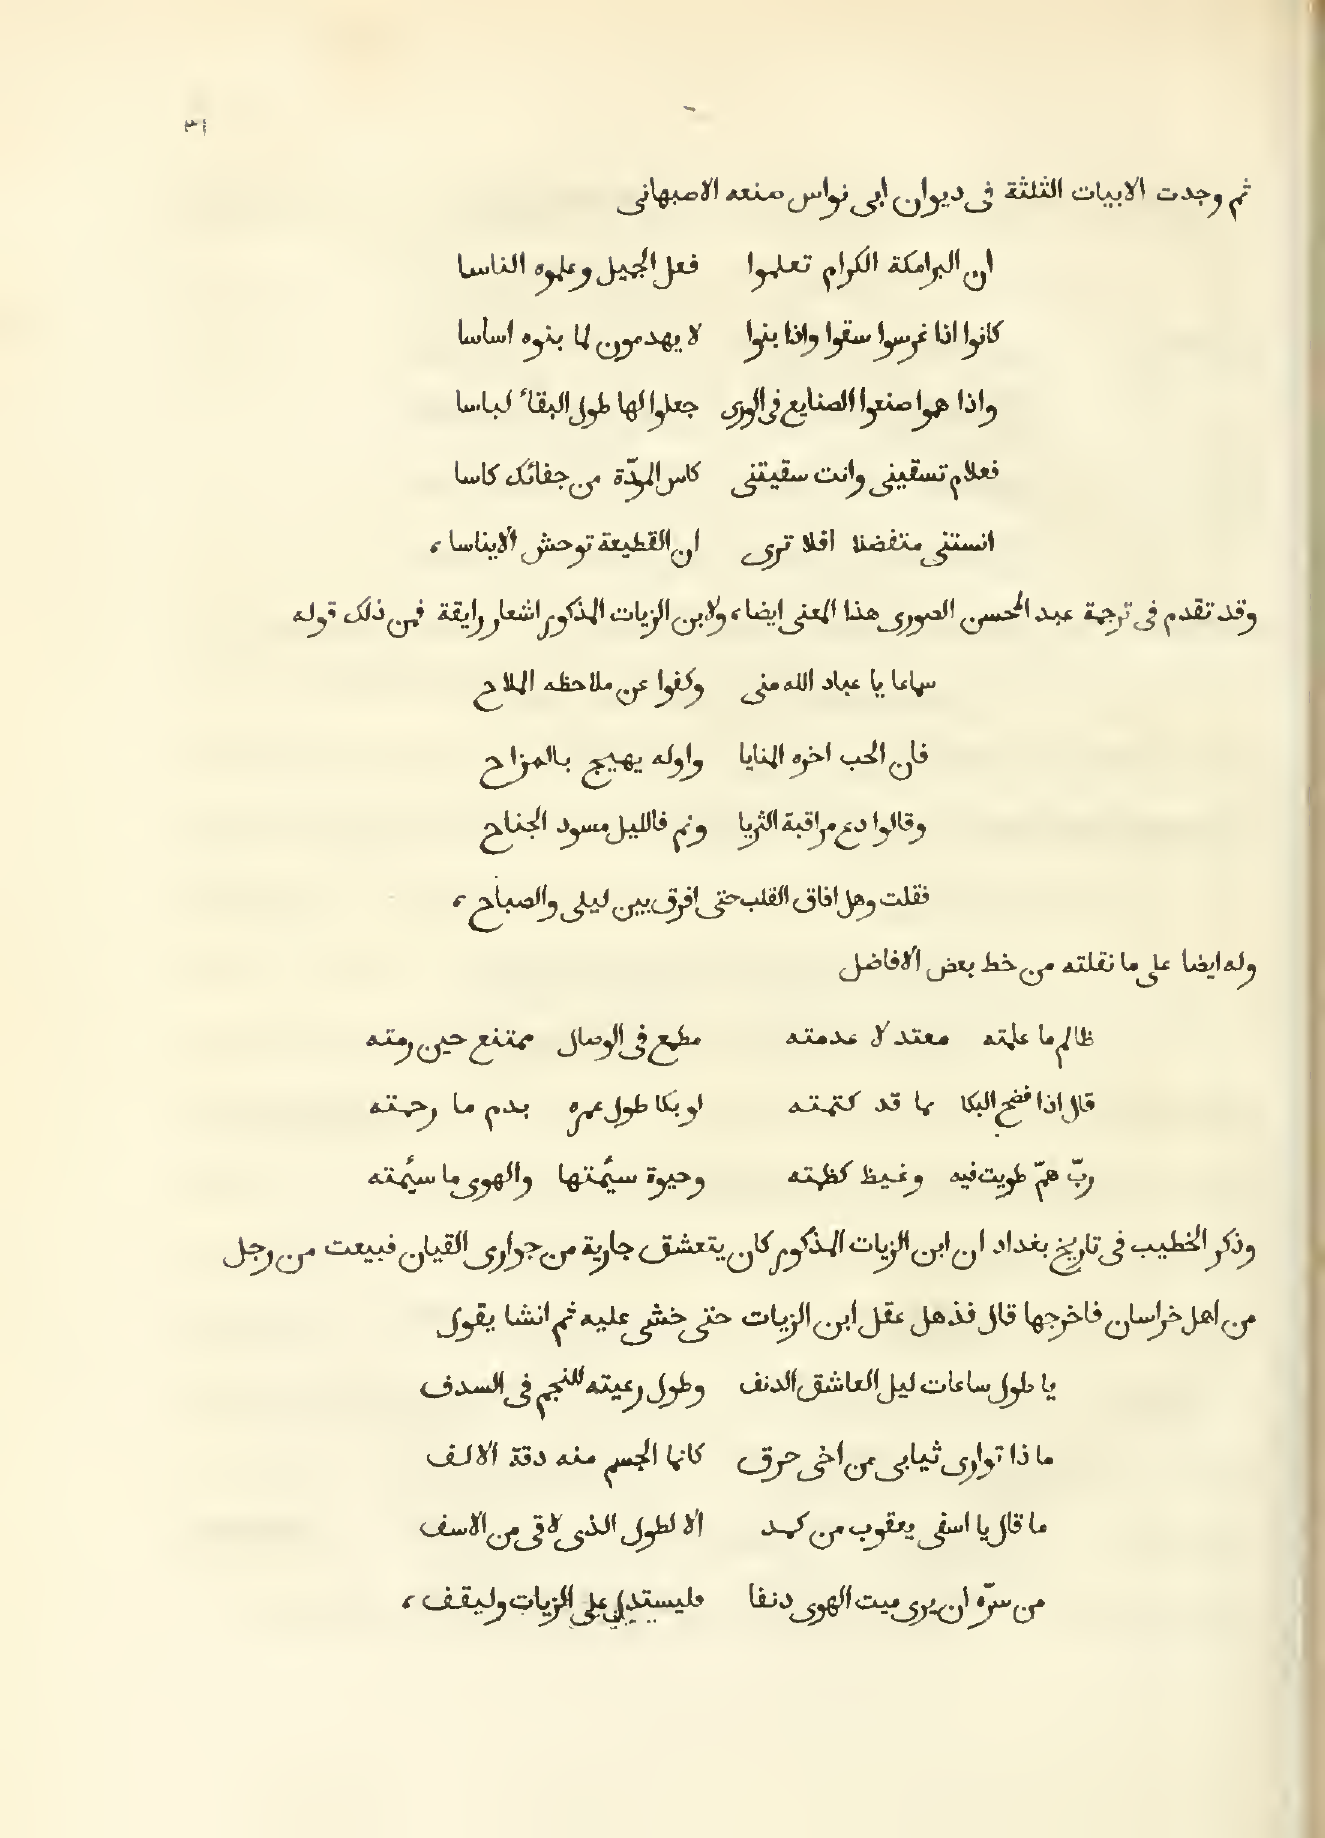 ٣١
ثم وجدت الابيات الثلثة فى ديوان ابى نواس صنعه الاصبهانى
ان البرامكة الكرام تعلموا فعل الجميل وعلموه الناسا
كانوا اذا غرسوا سقوا واذا بنوا لا يهدمون لما بنوه اساسا
واذا هموا صنعوا الصنايع فى الورى جعلوا لها طول البقاء لباسا
فعلام تسقينى وانت سقيتنى كاس المودّة من جفائك كاسا
انستنى متفضلا افلا ترى ان القطيعة توحش الايناسا،
وقد تقدم فى ترجمة عبد المحسن الصورى هذا المعنى ايضا، ولابن الزيات المذكور اشعار رايقة فمن ذلك قوله
سماعا يا عباد الله منى وكفوا عن ملاحظه الملاح
فان الحب اخره المنايا واوله يهيج بالمزاح
وقالوا دع مراقبة الثريا ونم فالليل مسود الجناح
فقلت وهل افاق القلب حتى افرق بين ليلى والصباح،
وله ايضا على ما نقلته من خط بعض الافاضل
ظالم ما علمته معتد لا عدمته مطمع فى الوصال ممتنع حين رمته
قال اذا فضح البكا بما قد كتمته لو بكا طول عمره بدم ما رحمته
ربّ همّ طويت فيه وغيظ كظمته وحيوة سئمتها والهوى ما سئمته
وذكر الخطيب فى تاريخ بغداد ان ابن الزيات المذكور كان يتعشق جارية من جوارى القيان فبيعت من رجل
من اهل خراسان فاخرجها قال فذهل عقل ابن الزيات حتى خشى عليه ثم انشا يقول
يا طول ساعات ليل العاشق الدنف وطول رعيته للنجم فى السدف
ما ذا توارى ثيابى من اخى حرق كانما الجسم منه دقة الالف
ما قال يا اسفى يعقوب من كمد الا لطول الذى لاقى من الاسف
من سرّه ان يرى ميت الهوى دنفا فليستدل على الزيات وليقف،